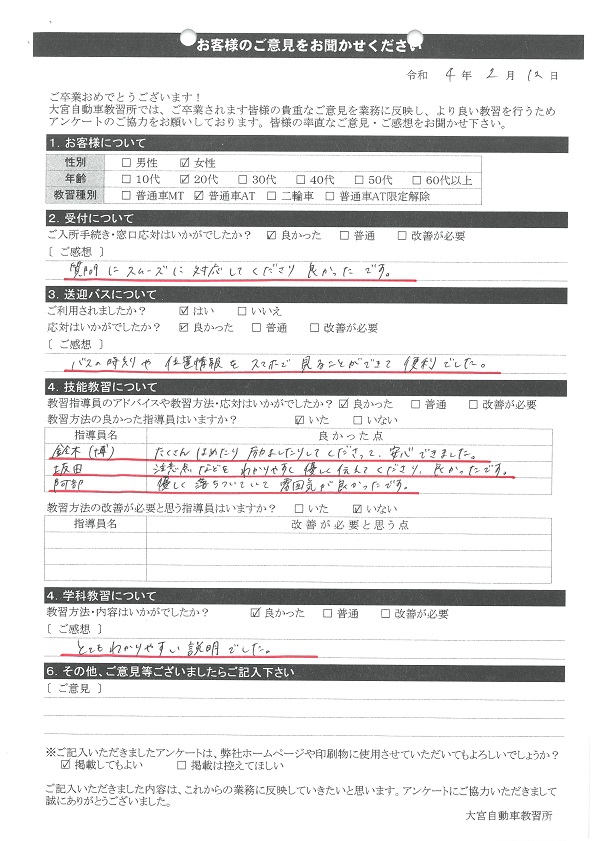 お客様のご意見をお聞かせください
令和 4 年 2 月 12 日
ご卒業おめでとうございます！
大宮自動車教習所では、ご卒業されます皆様の貴重なご意見を業務に反映し、より良い教習を行うため
アンケートのご協力をお願いしております。皆様の率直なご意見・ご感想をお聞かせ下さい。
1. お客様について
性別 □ 男性 ☑ 女性
年齢 □ 10代 ☑ 20代 □ 30代 □ 40代 □ 50代 □ 60代以上
教習種別 □ 普通車MT ☑ 普通車AT □ 二輪車 □ 普通車AT限定解除
2. 受付について
ご入所手続き・窓口応対はいかがでしたか？ ☑ 良かった □ 普通 □ 改善が必要
[ ご感想 ]
質問にスムーズに対応してくださり良かったです。
3. 送迎バスについて
ご利用されましたか？ ☑ はい □ いいえ
応対はいかがでしたか？ ☑ 良かった □ 普通 □ 改善が必要
[ ご感想 ]
バスの時刻や位置情報をスマホで見ることができて便利でした。
4. 技能教習について
教習指導員のアドバイスや教習方法・応対はいかがでしたか？ ☑ 良かった □ 普通 □ 改善が必要
教習方法の良かった指導員はいますか？ ☑ いた □ いない
指導員名 良かった点
鈴木（博） たくさんほめたり励ましたりしてくださって、安心できました。
坂田 注意点などをわかりやすく優しく伝えてくださり、良かったです。
阿部 優しく落ちついていて雰囲気が良かったです。
教習方法の改善が必要と思う指導員はいますか？ □ いた ☑ いない
指導員名 改善が必要と思う点
4. 学科教習について
教習方法・内容はいかがでしたか？ ☑ 良かった □ 普通 □ 改善が必要
[ ご感想 ]
とてもわかりやすい説明でした。
6. その他、ご意見等ございましたらご記入下さい
[ ご意見 ]
※ご記入いただきましたアンケートは、弊社ホームページや印刷物に使用させていただいてもよろしいでしょうか？
☑ 掲載してもよい □ 掲載は控えてほしい
ご記入いただきました内容は、これからの業務に反映していきたいと思います。アンケートにご協力いただきまして
誠にありがとうございました。
大宮自動車教習所